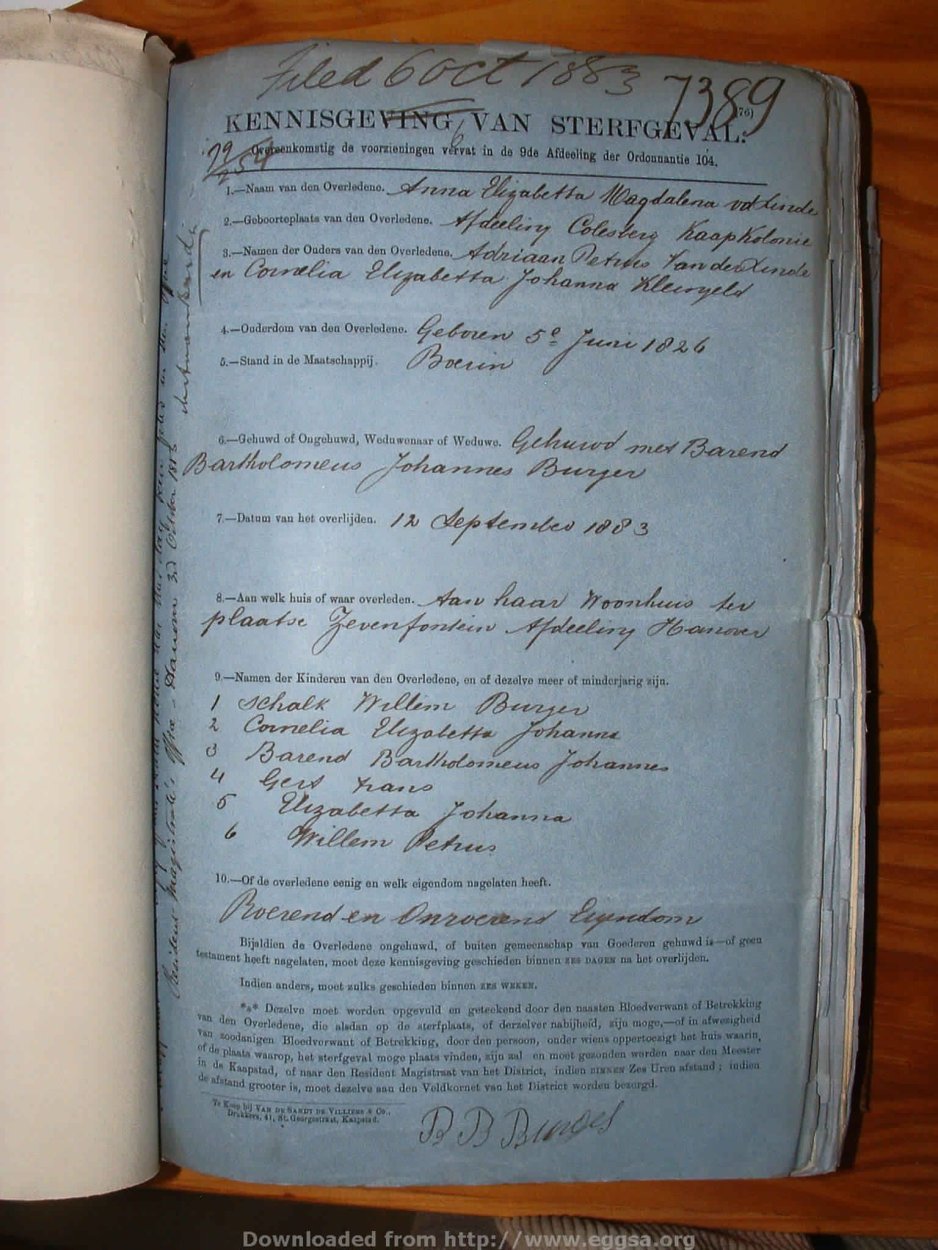 Filed 6 Oct 1883
7389
76)
KENNISGEVING VAN STERFGEVAL:
6
Overeenkomstig de voorzieningen vervat in de 9de Afdeeling der Ordonnantie 104.
1.—Naam van den Overledene. Anna Elizabetta Magdalena vd Linde
2.—Geboorteplaats van den Overledene. Afdeeling Colesberg Kaap Kolonie
3.—Namen der Ouders van den Overledene. Adriaan Petrus Van der Linde
en Cornelia Elizabetta Johanna Kleingeld
4.—Ouderdom van den Overledene. Geboren 5e Juni 1826
5.—Stand in de Maatschappij. Boerin
6.—Gehuwd of Ongehuwd, Weduwenaar of Weduwe. Gehuwd met Barend
Bartholomeus Johannes Burger
7.—Datum van het overlijden. 12 September 1883
8.—Aan welk huis of waar overleden. Aan haar Woonhuis ter
plaatse Zevenfontein Afdeeling Hanover
9.—Namen der Kinderen van den Overledene, en of dezelve meer of minderjarig zijn.
1 Schalk Willem Burger
2 Cornelia Elizabetta Johanna
3 Barend Bartholomeus Johannes
4 Gert Frans
5 Elizabetta Johanna
6 Willem Petrus
10.—Of de overledene eenig en welk eigendom nagelaten heeft.
Roerend en Onroerend Eigendom
Bijaldien de Overledene ongehuwd, of buiten gemeenschap van Goederen gehuwd is—of geen
testament heeft nagelaten, moet deze kennisgeving geschieden binnen ZES DAGEN na het overlijden.
Indien anders, moet zulks geschieden binnen ZES WEKEN.
*** Dezelve moet worden opgevuld en geteekend door den naasten Bloedverwant of Betrekking
van den Overledene, die alsdan op de sterfplaats, of derzelver nabijheid, zijn moge,—of in afwezigheid
van zoodanigen Bloedverwant of Betrekking, door den persoon, onder wiens oppertoezigt het huis waarin,
of de plaats waarop, het sterfgeval moge plaats vinden, zijn zal en moet gezonden worden naar den Meester
in de Kaapstad, of naar den Resident Magistraat van het District, indien BINNEN Zes Uren afstand; indien
de afstand grooter is, moet dezelve aan den Veldkornet van het District worden bezorgd.
Te Koop bij VAN DE SANDT DE VILLIERS & Co.,
Drukkers, 41, St. Georgestraat, Kaapstad.
B B Burger
Resident Magistrate's Office Hanover 3d October 1883
Downloaded from http://www.eggsa.org